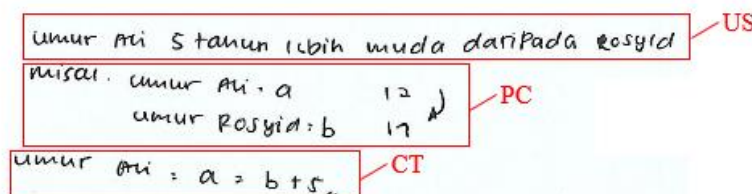 umur Ali 5 tahun lebih muda daripada Rosyid US
misal. umur Ali : a 12
umur Rosyid : b 17 PC
umur Ali : a = b + 5 CT